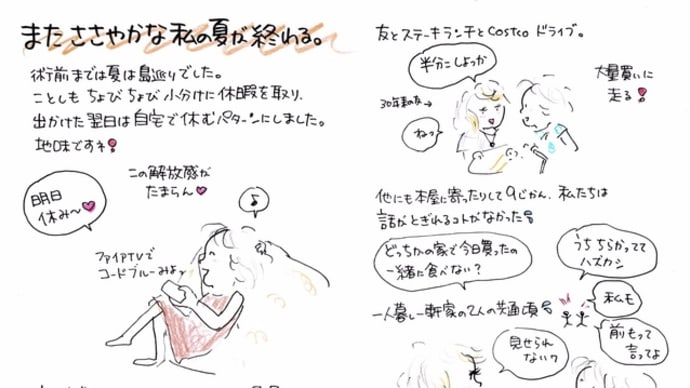 また ささやかな 私の夏が終わる。
術前までは夏は島巡りでした。
ことしも ちょび ちょび 小分けに休暇を取り、
出かけた翌日は自宅で休むパターンにしました。
地味ですネ
この解放感が
たまらん
明日
休み〜
♪
ファイアTVで
コードブルーみよ
友とステーキランチとCostcoドライブ。
半分こしよっか
30年来の友→
ねっ
大量買いに
走る
他にも本屋に寄ったりして9じかん、私たちは
話がとぎれるコトがなかった
どっちかの家で今日買ったの
一緒に食べない?
うち ちらかってて
ハズカシ
一人暮し一軒家の2人の共通項
私も
前もって
言ってよ
見せられ
ない?